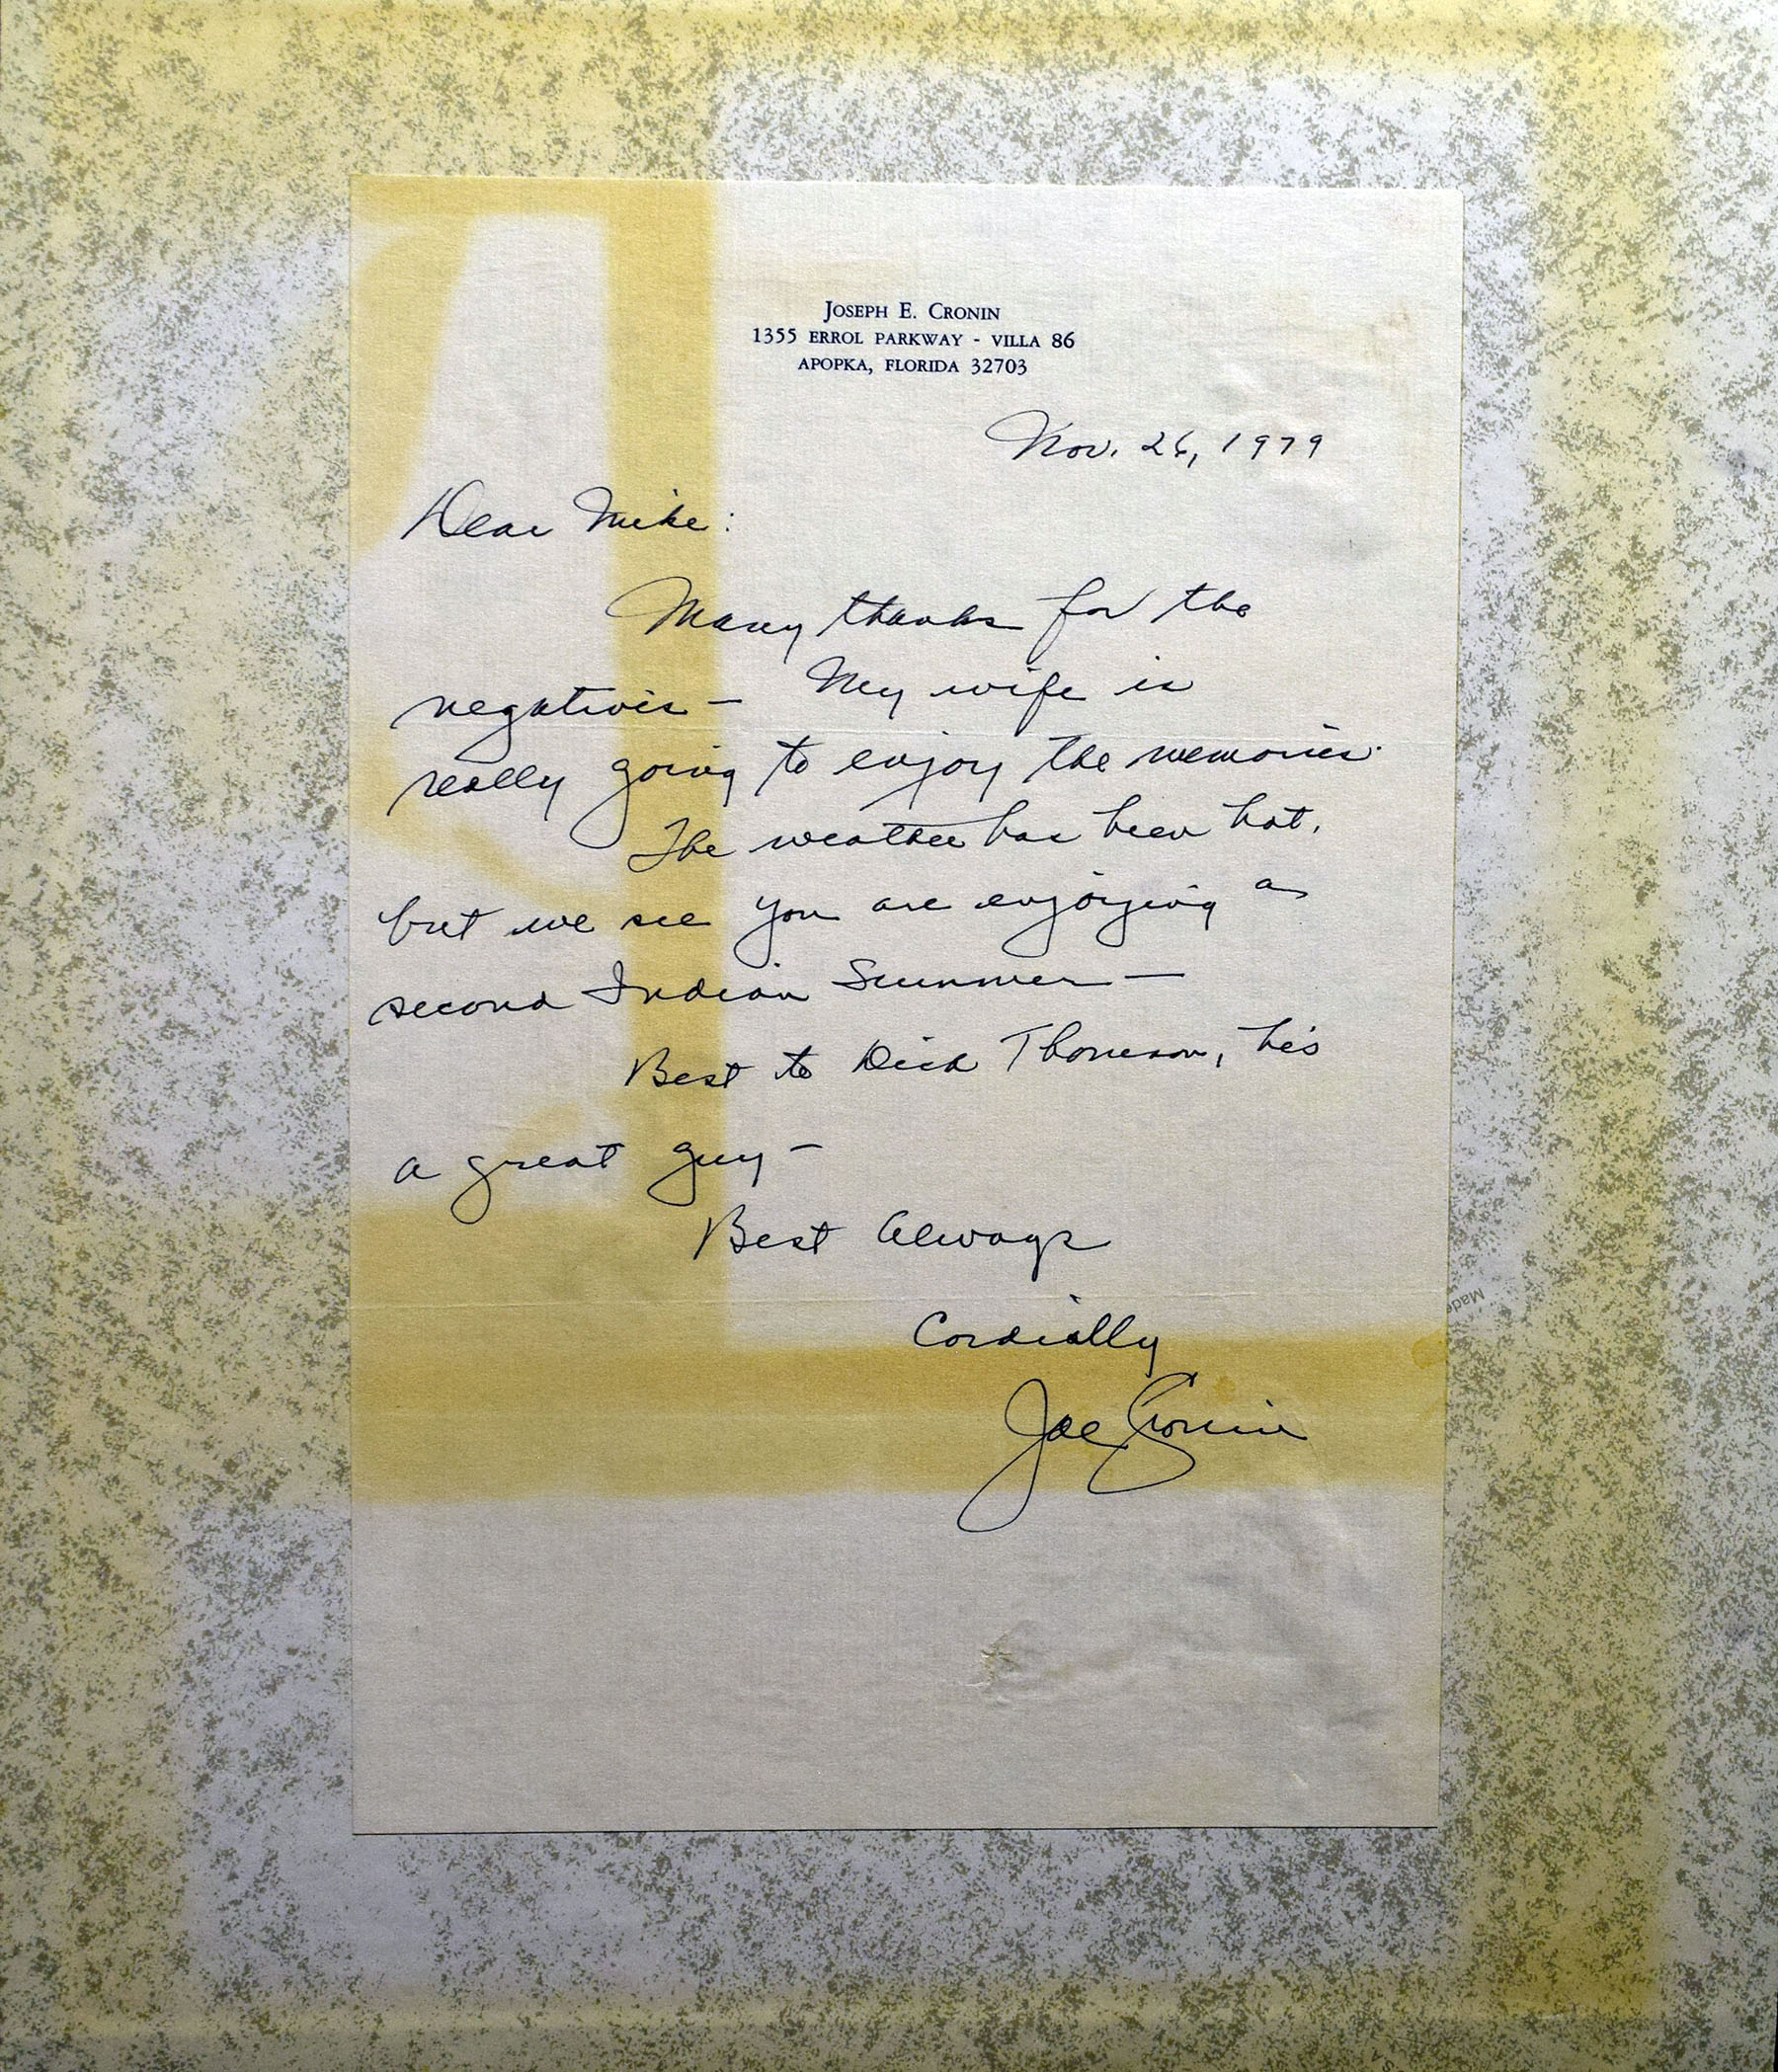 JOSEPH E. CRONIN
1355 ERROL PARKWAY - VILLA 86
APOPKA, FLORIDA 32703
Nov. 26, 1979
Dear Mike:
Many thanks for the
negatives - My wife is
really going to enjoy the memories.
The weather has been hot,
but we see you are enjoying a
second Indian Summer -
Best to Dick Thomson, he's
a great guy -
Best Always
Cordially
Joe Cronin
Made